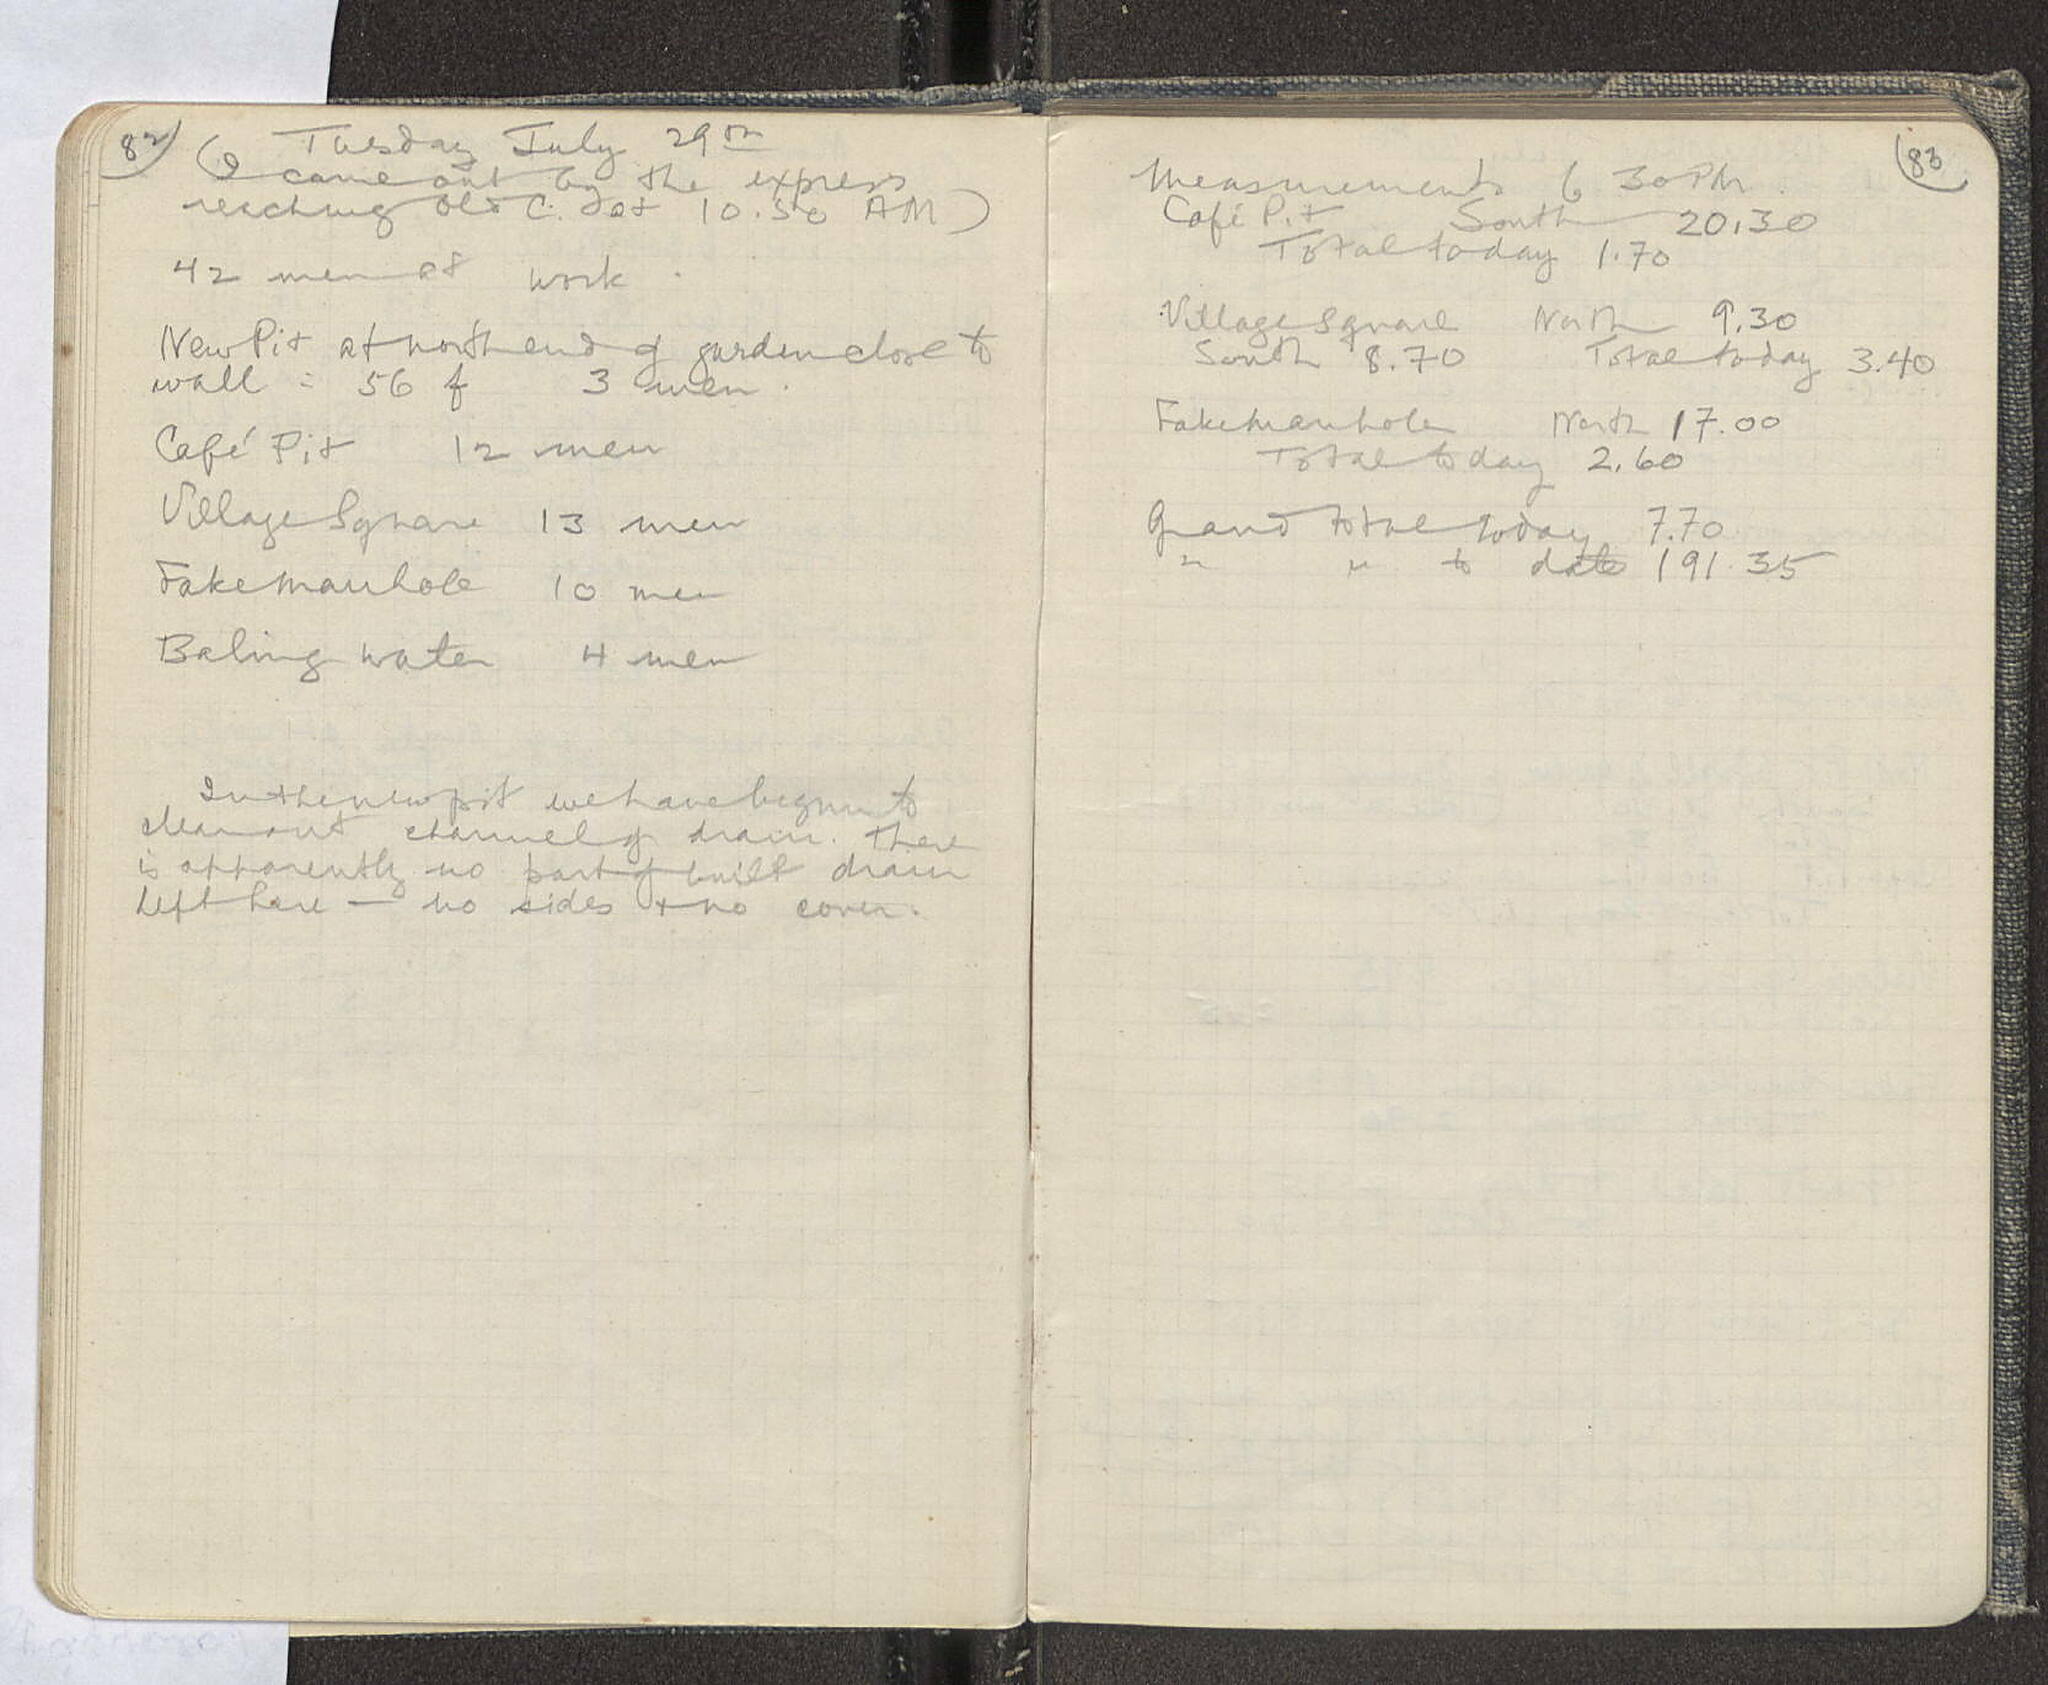 82
Tuesday July 29th
(I came out by the express
reaching Old C. at 10.50 AM)
42 men at work.
New Pit at north end of garden close to
wall = 56 f 3 men.
Café Pit 12 men
Village Square 13 men
Fake Manhole 10 men
Baling water 4 men
In the new pit we have begun to
clean out channel of drain. There
is apparently no part of built drain
left here — no sides & no cover.
83
Measurements 6 30 PM.
Café Pit South 20.30
Total today 1.70
Village Square North 9.30
South 8.70 Total today 3.40
Fake manhole North 17.00
Total today 2.60
Grand total today 7.70
" " to date 191.35